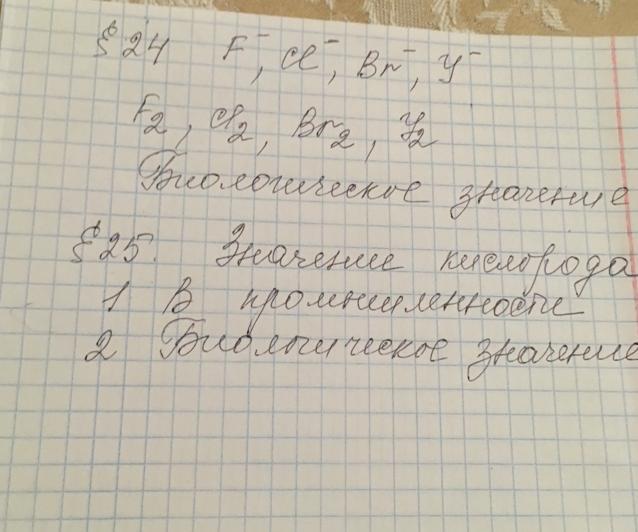 § 24 F⁻, Cl⁻, Br⁻, Y⁻
F₂, Cl₂, Br₂, Y₂
Биологическое значение
§ 25. Значение кислорода
1 В промышленности
2 Биологическое значение